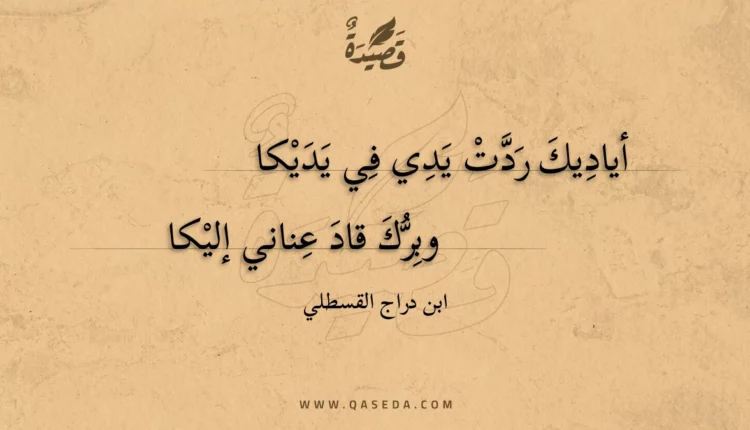 قَصِيدَةٌ
أيادِيكَ رَدَّتْ يَدِي فِي يَدَيْكا
وبِرُّكَ قادَ عِناني إليْكا
ابن دراج القسطلي
WWW.QASEDA.COM